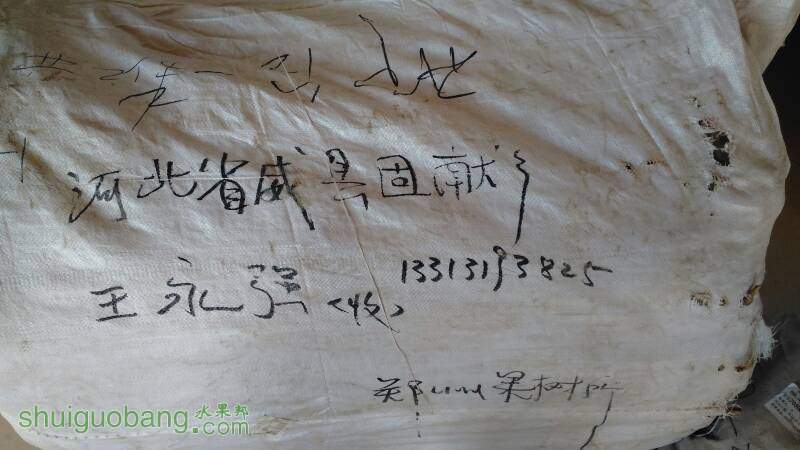 河北省威县固献乡
王永强<收> 13313193825
郑州果树所
shuiguobang.com 水果邦